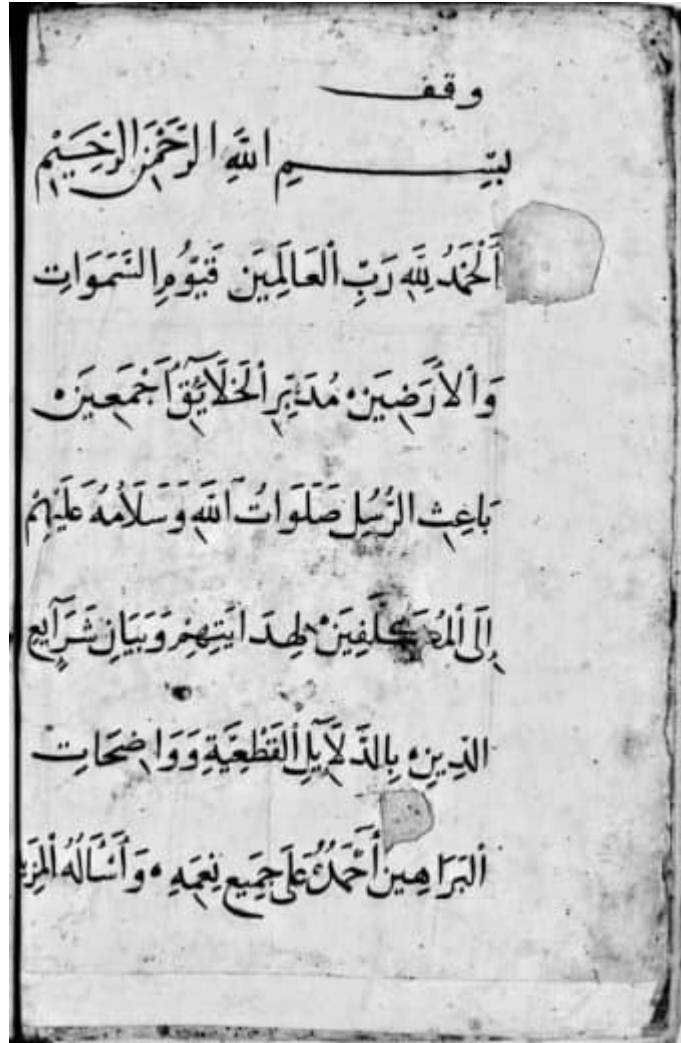 وقف
بِسْمِ اللَّهِ الرَّحْمَنِ الرَّحِيمِ
أَلْحَمْدُ لِلَّهِ رَبِّ الْعَالَمِينَ قَيُّومِ السَّمَوَاتِ
وَالْأَرَضِينَ مُدَبِّرِ الْخَلَايِقِ أَجْمَعِينَ
بَاعِثِ الرُّسُلِ صَلَوَاتُ اللَّهِ وَسَلَامُهُ عَلَيْهِمْ
إِلَى الْمُكَلَّفِينَ لِهِدَايَتِهِمْ وَبَيَانِ شَرَايِعِ
الدِّينِ بِالدَّلَايِلِ الْقَطْعِيَّةِ وَوَاضِحَاتِ
الْبَرَاهِينِ أَحْمَدُهُ عَلَى جَمِيعِ نِعَمِهِ وَأَسْأَلُهُ